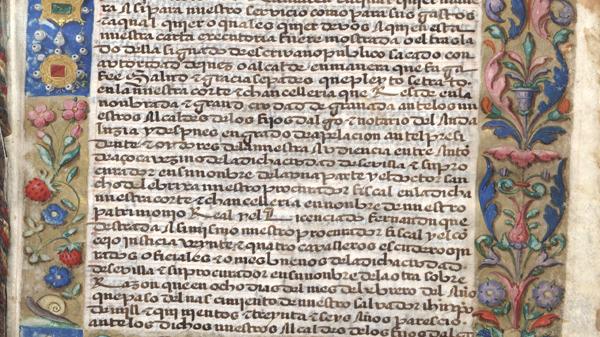 ta assi para nuestro servicio como para sus gastos
 a qual quier o quales quier de vos a quien esta
nuestra carta executoria fuere mostrada o el trasla
do della signado de escrivano publico sacado con
autoridad de juez o alcalde en manera que faga
fee Salud & gracia sepades que pleyto se trato
en la nuestra corte & chancelleria que Reside en la
nombrada & grand ciudad de granada ante los nu
estros Alcaldes de los fijos dal go & notario del Anda
luzia y despues en grado de apelacion ante el presi
dente & oydores de la nuestra Audiencia entre Anto
vezino de la dicha ciudad de sevilla & su pro
curador en su nombre de la una parte y el doctor san
cho de lebrixa nuestro procurador fiscal en la dicha
nuestra corte & chancelleria en nombre de nuestro
patrimonio Real y el Licenciado Fernand que
de strada Assi mismo nuestro procurador fiscal y el co
cejo justicia veynte & quatro cavalleros escuderos ju
rados oficiales & omes buenos de la dicha ciudad
de sevilla & su procurador en su nombre de la otra sobre
Razon que en ocho dias del mes de hebrero del Año
que paso del nascimiento de nuestro salvador ihu xpo
de mill & quinientos & treynta & seys Años parescio
ante los dichos nuestros Alcaldes de los fijos dal go